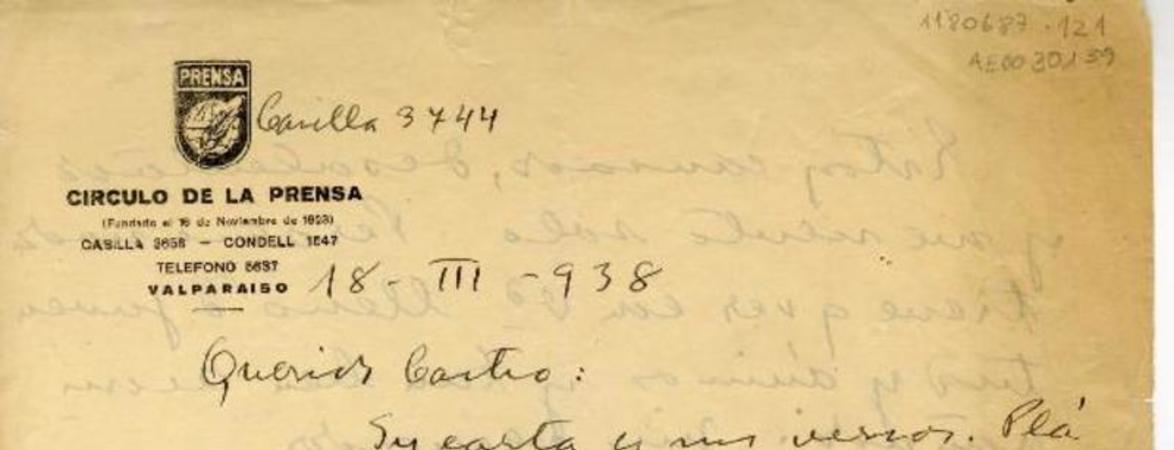 1180687-121
AE0030139
PRENSA
Casilla 3744
CIRCULO DE LA PRENSA
(Fundado el 16 de Noviembre de 1923)
CASILLA 3658 - CONDELL 1547
TELEFONO 5637
VALPARAISO 18-III-938
Querido Castro:
Su carta y sus versos. Plá